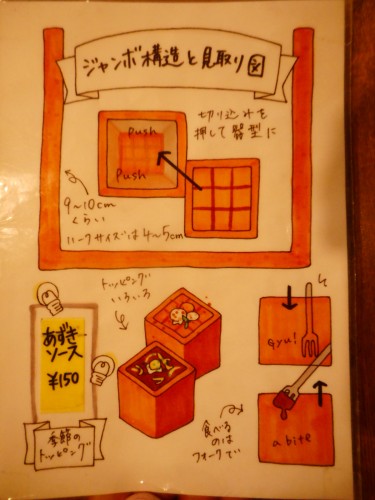 ジャンボ構造と見取り図
切り込みを
押して器型に
push
Push
9〜10cm
くらい
ハーフサイズは4〜5cm
トッピング
いろいろ
あずき
ソース
¥150
季節の
トッピング
gyu!
食べる
のは
フォークで
a bite